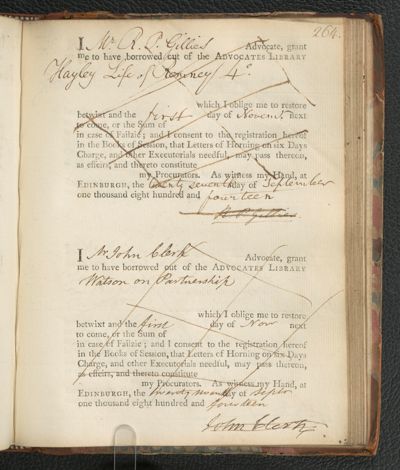 264.
I Mr R. P. Gillies Advocate, grant
me to have borrowed out of the ADVOCATES LIBRARY
Hayley Life of Romney 4o.
which I oblige me to restore
betwixt and the first day of Novemr next
to come, or the Sum of
in case of Failzie; and I consent to the registration hereof
in the Books of Session, that Letters of Horning on six Days
Charge, and other Executorials needful, may pass thereon,
as effeirs, and thereto constitute
my Procurators. As witness my Hand, at
EDINBURGH, the twenty seventh day of September
one thousand eight hundred and fourteen
R. P. Gillies
I Mr John Clerk Advocate, grant
me to have borrowed out of the ADVOCATES LIBRARY
Watson on Partnership
which I oblige me to restore
betwixt and the first day of Nov next
to come, or the Sum of
in case of Failzie; and I consent to the registration hereof
in the Books of Session, that Letters of Horning on six Days
Charge, and other Executorials needful, may pass thereon,
as effeirs, and thereto constitute
my Procurators. As witness my Hand, at
EDINBURGH, the day of Septr
one thousand eight hundred and fourteen
John Clerk